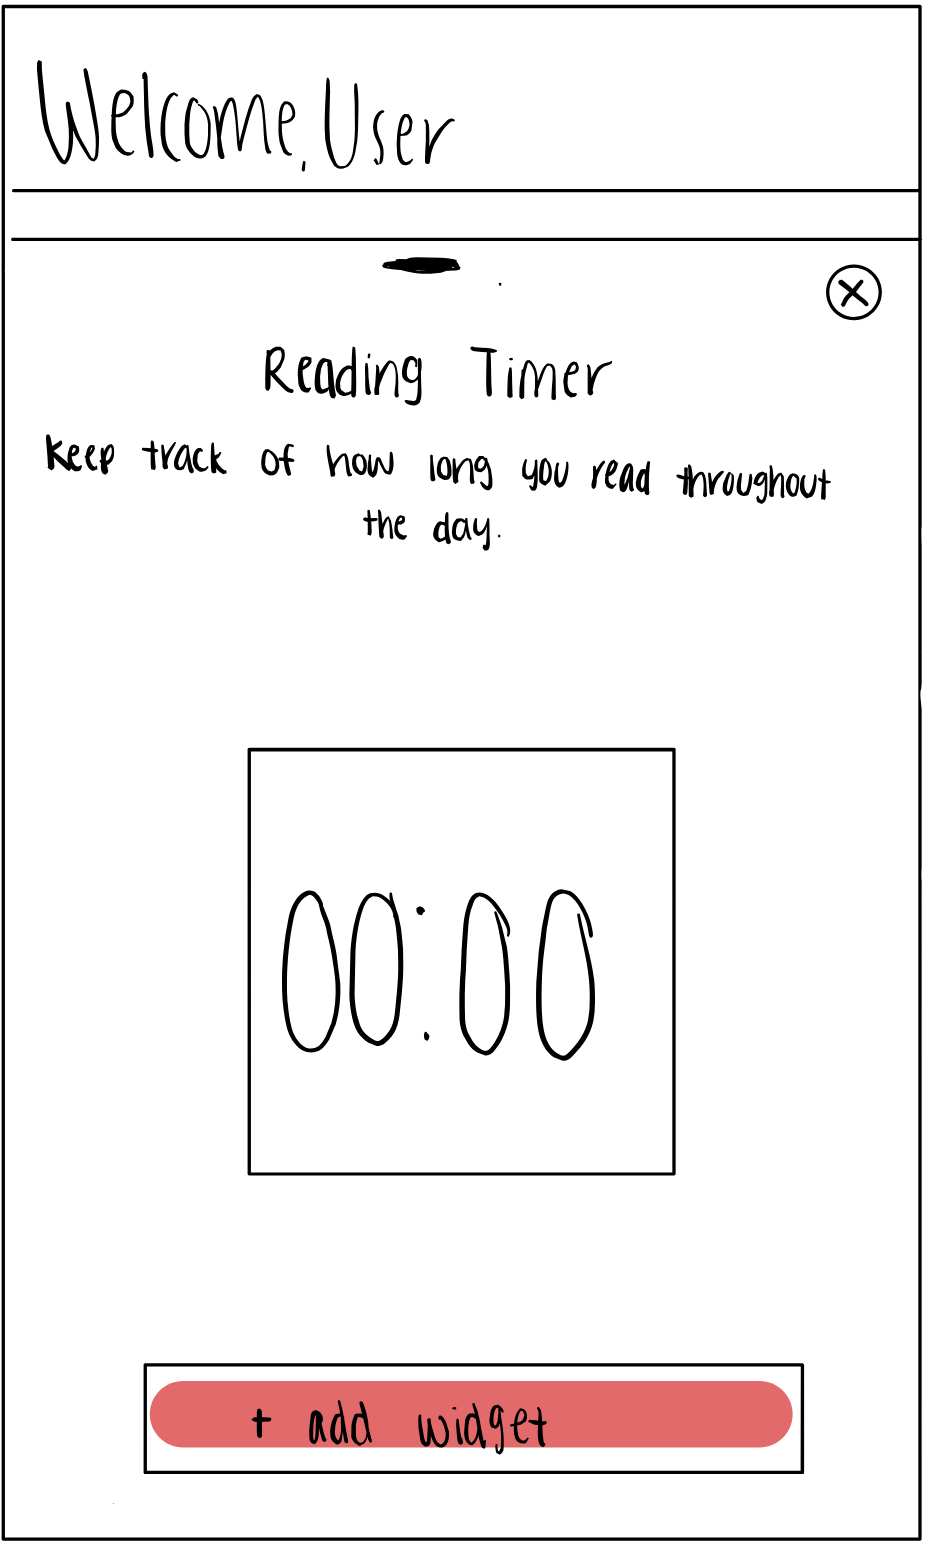 Welcome, User
Reading Timer
Keep track of how long you read throughout
the day.
00:00
+ add widget